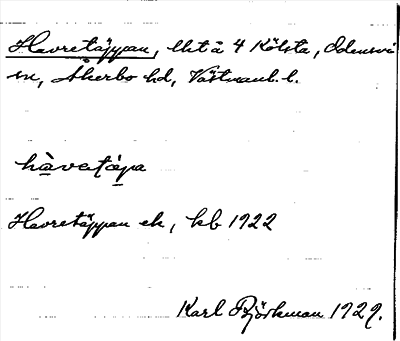 Havretäppan, lht å 4 Kölsta, Odensvi
sn, Åkerbo hd, Västmanl. l.
hàvatápa
Havretäppan ek, kb 1922
Karl Björkman 1929.